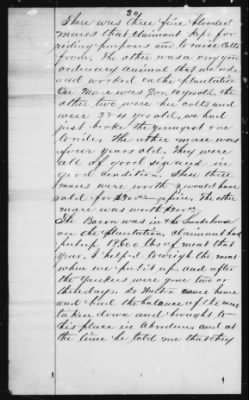 30
There was three fine blooded
mares that claimant kep for
riding purposes and to raise colts
from. The other was a
ordinary animal that we rode
and worked on the plantation
One Mare was 9 or 10 years old the
other two were her colts and
were 3 & 4 yrs old, we had
just broke the youngest one
to ride, the other mare was
four years old. They were
all of good size and in
good condition. These three
mares were worth & would have
sold for apiece. The other
mare was worth
The Bacon was in the Smokehouse
on the plantation, claimant had
put up 19600 lbs of meat that
year, I helped to weigh the meat
when we put it up, and after
the Yankees were gone two or
three days Mr Fulton came home
and had the balance of the meat
taken down and brought to
his place in Aberdeen and at
the time he told me that they